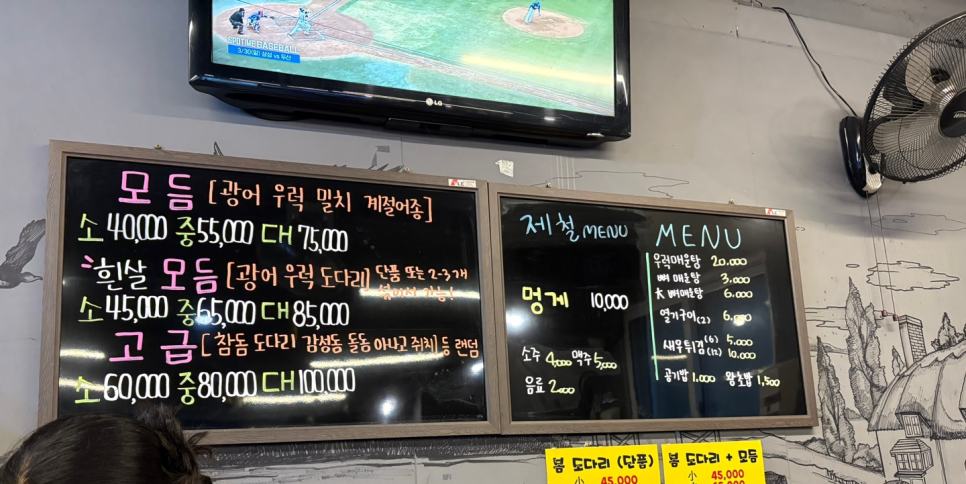 SPOTIME BASEBALL
3/30(일) 삼성 vs 두산
LG
모듬 [광어 우럭 밀치 계절어종]
소 40,000 중 55,000 대 75,000
흰살 모듬 [광어 우럭 도다리] 단품 또는 2-3개
섞어서 가능!
소 45,000 중 65,000 대 85,000
고급 [참돔 도다리 감성돔 돌돔 이시고 쥐치] 등 랜덤
소 60,000 중 80,000 대 100,000
제철 MENU
멍게 10,000
소주 4,000 맥주 5,000
음료 2,000
MENU
우럭매운탕 20.000
뼈 매운탕 3.000
大 뼈매운탕 6.000
열기구이(2) 6,000
새우튀김 (6) 5.000
(12) 10.000
공기밥 1,000 왕초밥 1,500
봄 도다리 (단품)
小 45,000
봄 도다리 + 모듬
小 45,000